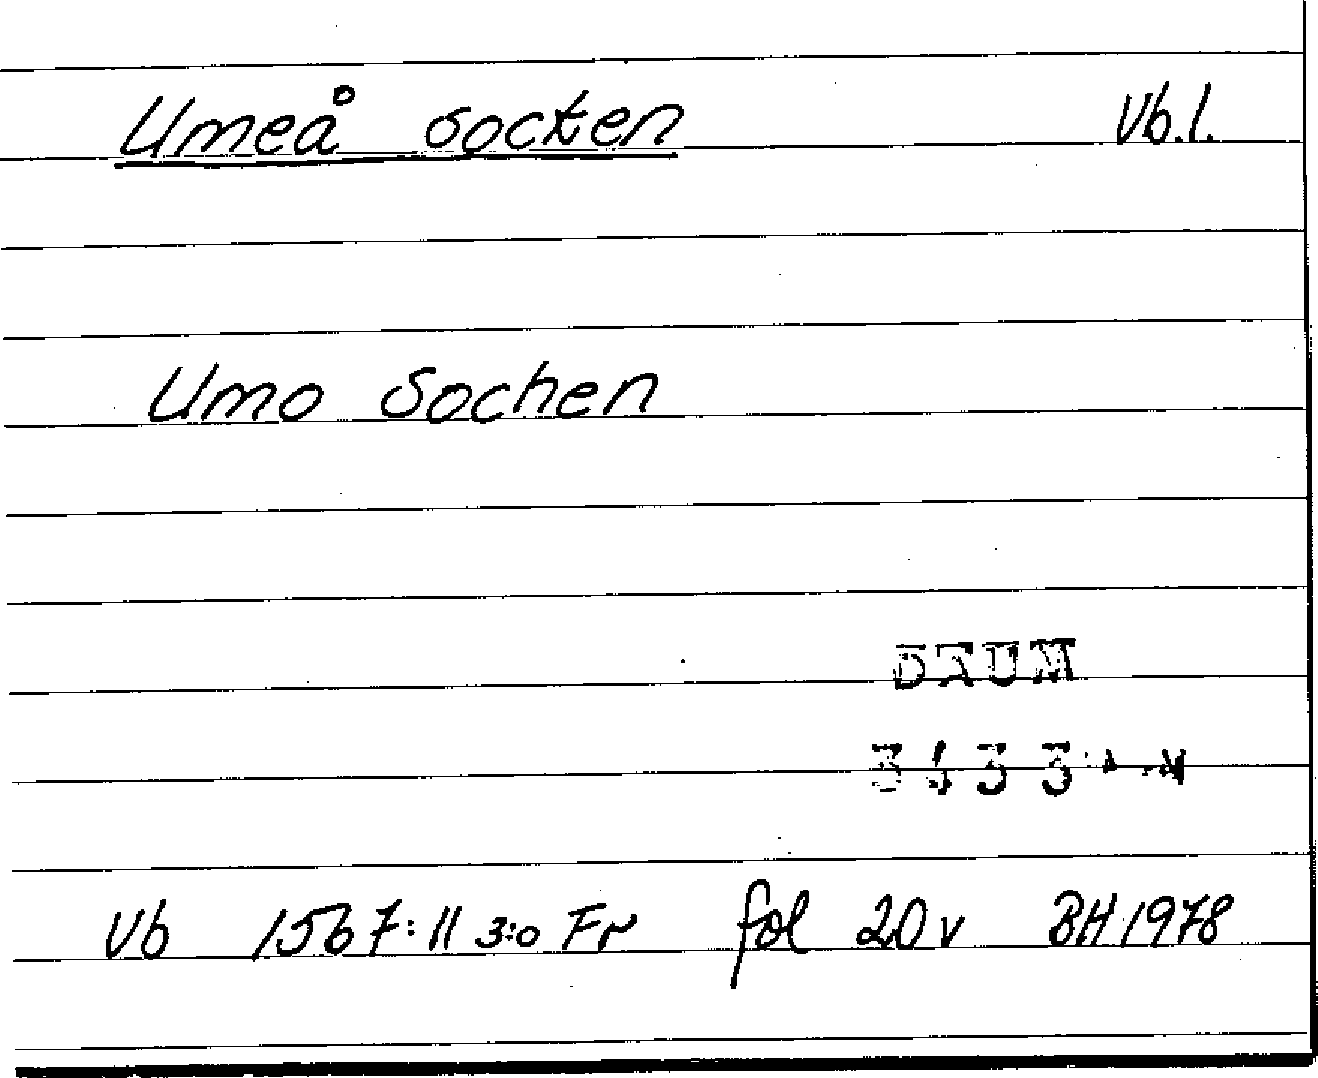 Umeå socken Vb.l.
Umo Sochen
DAUM
Vb 1567:11 3:o Fr fol 20v BH 1978